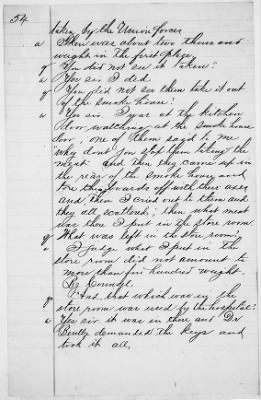 54
taken by the Union forces
a There was about two thousand
weight in the first place.
q You did not see it taken?
a Yes sir I did.
q You did not see them take it out
of the smoke house?
a Yes sir. I was at the kitchen
door watching at the smoke house
door; one of them said to me
"why dont you stop them taking the
meat" and then they came up in
the rear of the smoke house and
tore the boards off with their axes
and then I cried out to them and
they all scattered; then what meat
was there I put in the store room.
q What was left in the store room?
a I judge what I put in the
store room did not amount to
more than five hundred weight.
By Counsel.
q And that which was in the
store room was used by the hospital?
a Yes sir it was in there and Dr
Bently demanded the keys and
took it all.